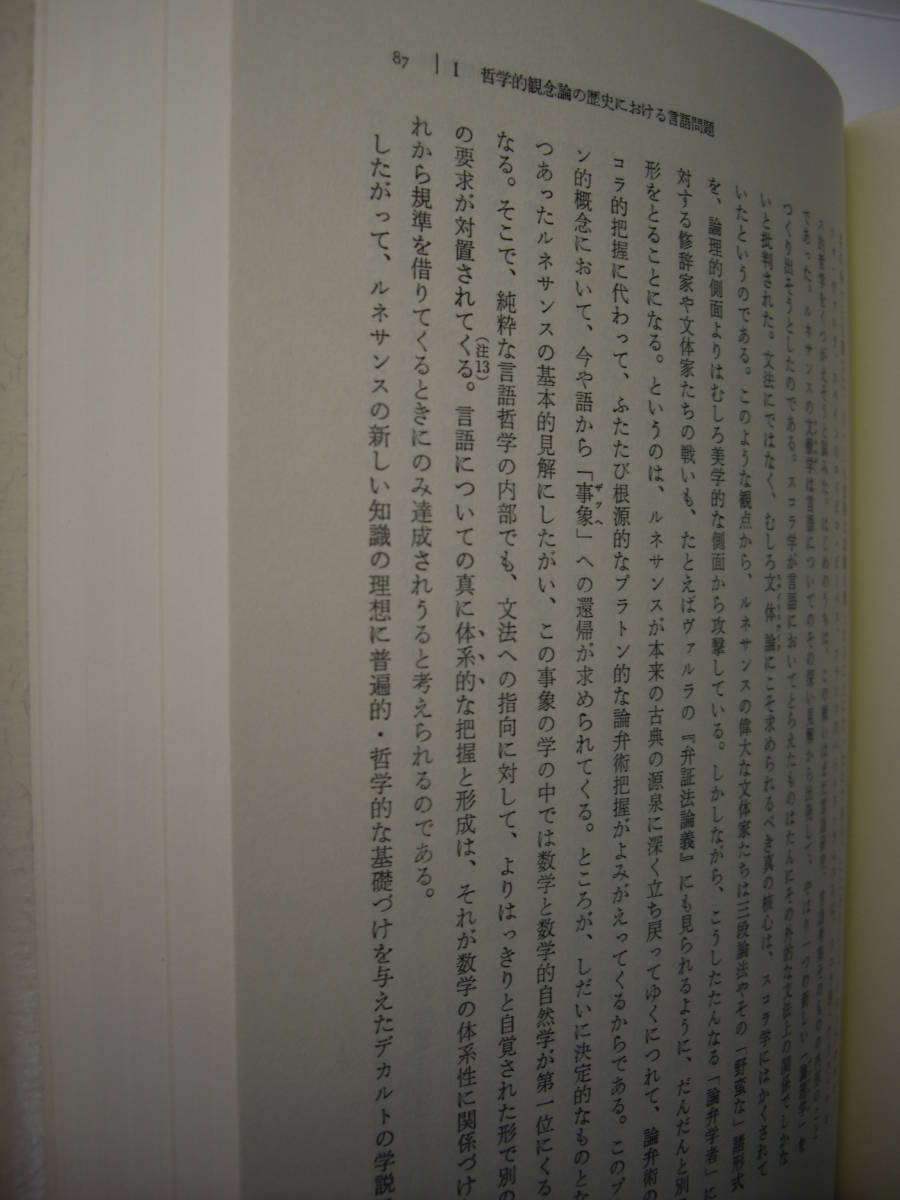 87 | I 哲学的観念論の歴史における言語問題
ス的哲学をくつがえそうと試みた。はじめのうちは、この戦いはまだ言語研究、
であった。ルネサンスの文献学は言語についてのその深い見解から出発して、やはり一つの新しい
つくり出そうとしたのである。スコラ学が言語においてとらえたものはたんにその外的な文法上の関係でしかな
いと批判された。文法にではなく、むしろ文体論にこそ求められるべき真の核心は、スコラ学にはかくされて
いたというのである。このような観点から、ルネサンスの偉大な文体家たちは三段論法やその「野蛮な」語形式
を、論理的側面よりはむしろ美学的な側面から攻撃している。しかしながら、こうしたたんなる「論弁学者」に
対する修辞家や文体家たちの戦いも、たとえばヴァルラの『弁証法論義』にも見られるように、だんだんと別
形をとることになる。というのは、ルネサンスが本来の古典の源泉に深く立ち戻ってゆくにつれて、論弁術の
コラ的把握に代わって、ふたたび根源的なプラトン的な論弁術把握がよみがえってくるからである。このプ
ン的概念において、今や語から「事象」への還帰が求められてくる。ところが、しだいに決定的なものとな
ザッヘ
つあったルネサンスの基本的見解にしたがい、この事象の学の中では数学と数学的自然学が第一位にくる
なる。そこで、純粋な言語哲学の内部でも、文法への指向に対して、よりはっきりと自覚された形で別の
の要求が対置されてくる。言語についての真に体系的な把握と形成は、それが数学の体系性に関係づけ
(注13)
れから規準を借りてくるときにのみ達成されうると考えられるのである。
したがって、ルネサンスの新しい知識の理想に普遍的・哲学的な基礎づけを与えたデカルトの学説